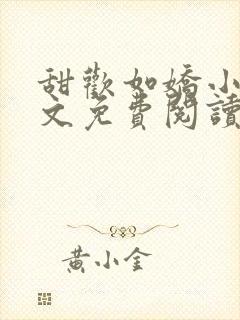 甜歡如嬌小
文免費閱讀
黃小金